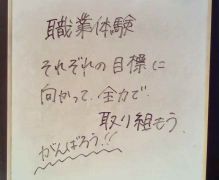 職業体験
それぞれの目標に
向かって、全力で
取り組もう。
がんばろう!!